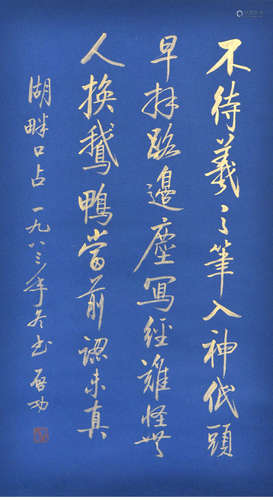 不待羲之筆入神低頭
早拜路邊塵寫經難怪無
人換鵝鴨當前認未真
湖畔口占一九八三年冬書 啟功